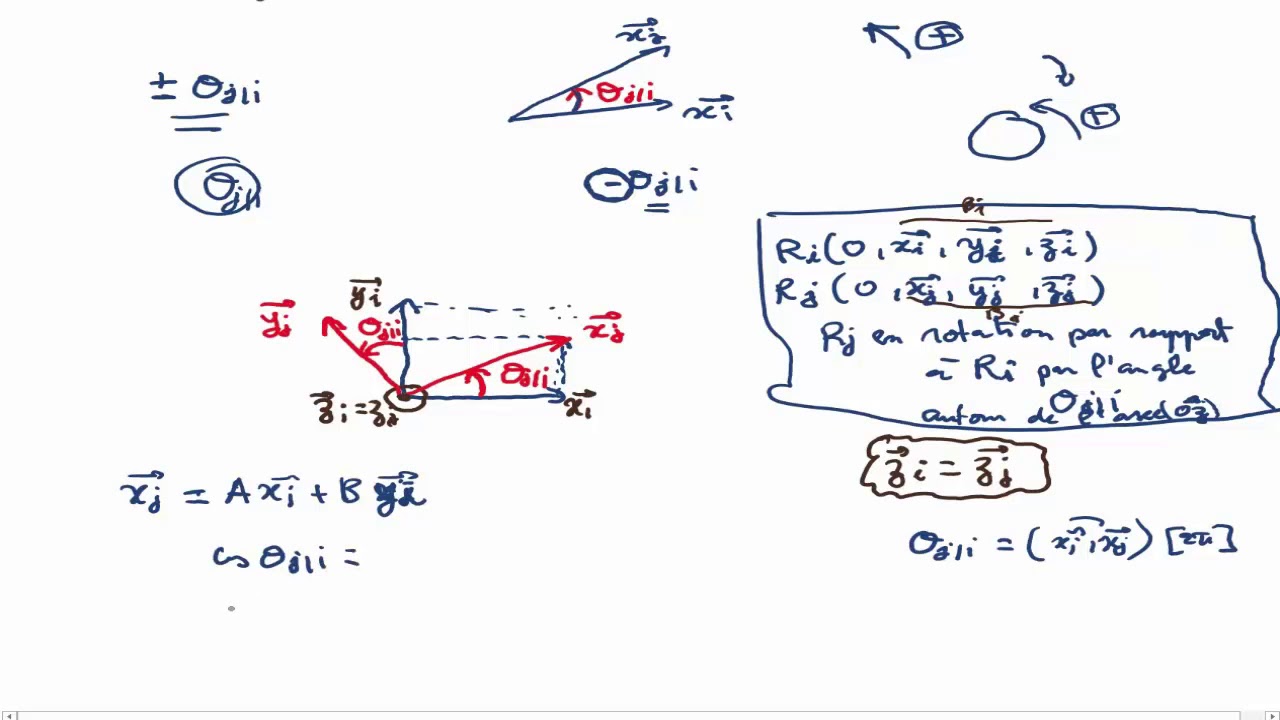 ± θj/i
θj/i
xj
θj/i
xi
- θj/i
+
+
Bi
Ri(O, xi, yi, zi)
Rj(O, xj, yj, zj)
Bj
Rj en rotation par rapport
à Ri par l'angle θj/i
autour de l'axe (O z)
zi = zj
θj/i = (xi, xj) [2π]
yi
yj
θj/i
xj
θj/i
zi = zj
xi
xj = A xi + B yi
cos θj/i =